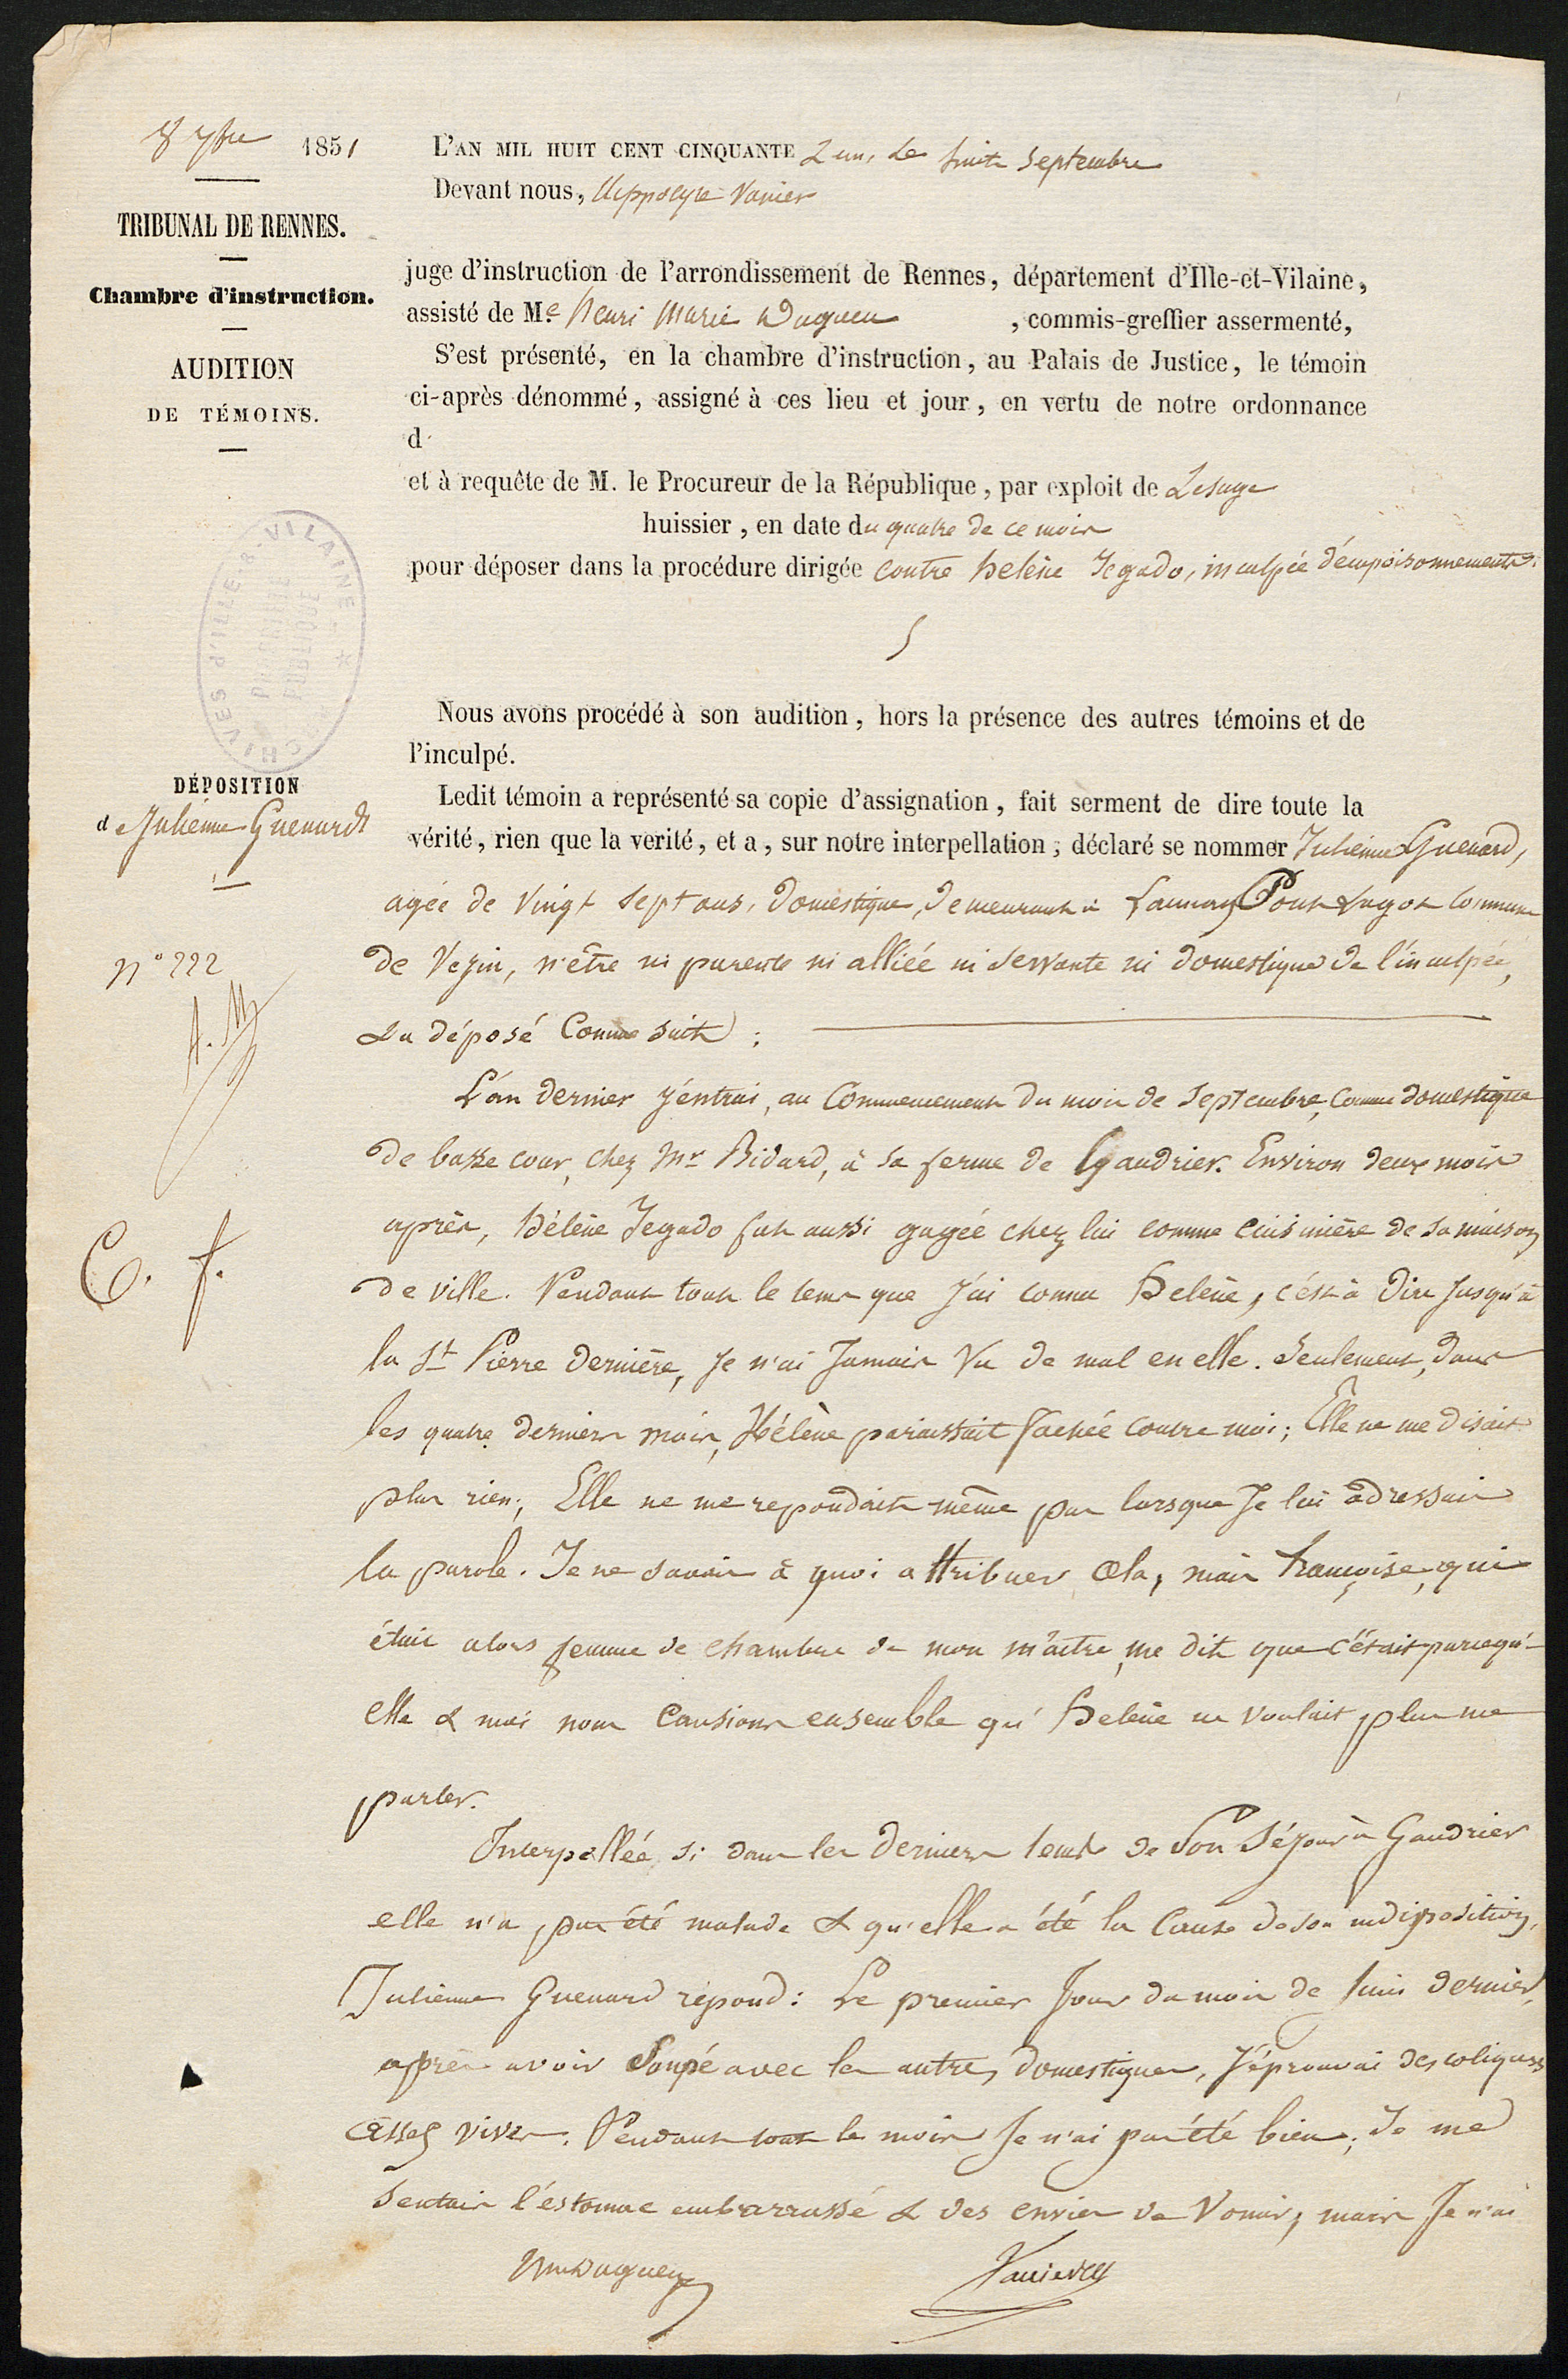 8 7bre 1851
TRIBUNAL DE RENNES.
Chambre d'instruction.
AUDITION
DE TÉMOINS.
L'AN MIL HUIT CENT CINQUANTE & un, le huit Septembre
Devant nous, Hippolyte Vanier
juge d'instruction de l'arrondissement de Rennes, département d'Ille-et-Vilaine,
assisté de Me. henri Marie Duguen , commis-greffier assermenté,
S'est présenté, en la chambre d'instruction, au Palais de Justice, le témoin
ci-après dénommé, assigné à ces lieu et jour, en vertu de notre ordonnance
d
et à requête de M. le Procureur de la République, par exploit de Lesage
huissier, en date du quatre de ce mois
pour déposer dans la procédure dirigée contre helène Jegado, inculpée d'empoisonnements.
Nous avons procédé à son audition, hors la présence des autres témoins et de
l'inculpé.
ARCHIVES d'ILLE-&-VILAINE
PROPRIÉTÉ
PUBLIQUE
DÉPOSITION
de Julienne Guenard
N° 222
C. f.
Ledit témoin a représenté sa copie d'assignation, fait serment de dire toute la
vérité, rien que la verité, et a, sur notre interpellation, déclaré se nommer Julienne Guenard,
agée de vingt sept ans, domestique, demeurant à Launay Pont Lagot commune
de Vezin, n'être ni parente ni alliée ni servante ni domestique de l'inculpée,
& a déposé Comme suit :
L'an dernier j'entrai, au Commencement du mois de Septembre, comme domestique
de basse cour, chez Mr Bidard, à sa ferme de Gaudrier. Environ deux mois
après, hélène Jegado fut aussi gagée chez lui comme cuisinière de sa maison
de ville. Pendant tout le tems que j'ai connu helène, c'est à dire jusqu'à
la St Pierre dernière, je n'ai Jamais vu de mal en elle. Seulement, dans
les quatre derniers mois, Hélène paraissait fachée contre moi ; Elle ne me disait
plus rien ; Elle ne me repondait même pas lorsque Je lui adressais
la parole. Je ne savais à quoi attribuer cela, mais françoise, qui
était alors femme de chambre de mon maître, me dit que c'était parcequ'
elle & moi nous Causions ensemble qu' helène ne voulait plus me
parler.
Interpellée si dans les derniers tems de Son Séjour à Gaudrier
elle n'a pas été malade & qu'elle a été la Cause de son indisposition,
Julienne Guenard répond : Le premier Jour du mois de juin dernier,
après avoir Soupé avec les autres domestiques, j'éprouvai des coliques
assez vives. Pendant tout le mois Je n'ai pas été bien ; Je me
sentais l'estomac embarrassé & des envies de Vomir, mais Je n'ai
hmDuguen
Vanier